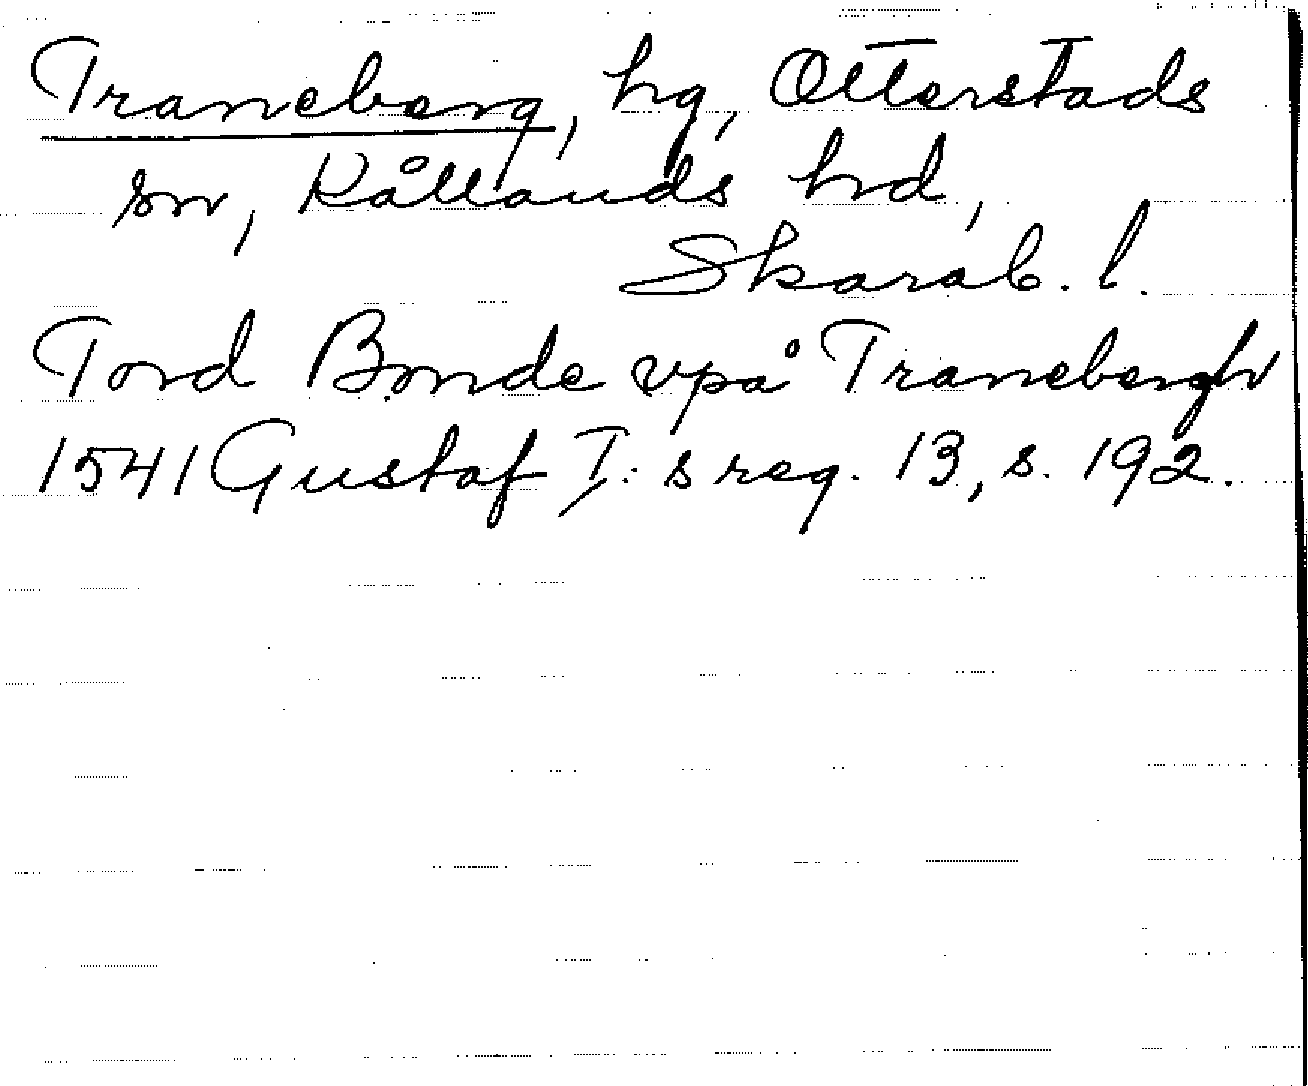 Traneberg, hg, Otterstads
sn, Kållands hd,
Skarab. l.
Tord Bonde vpå Tranebergh
1541 Gustaf I:s reg. 13, s. 192.